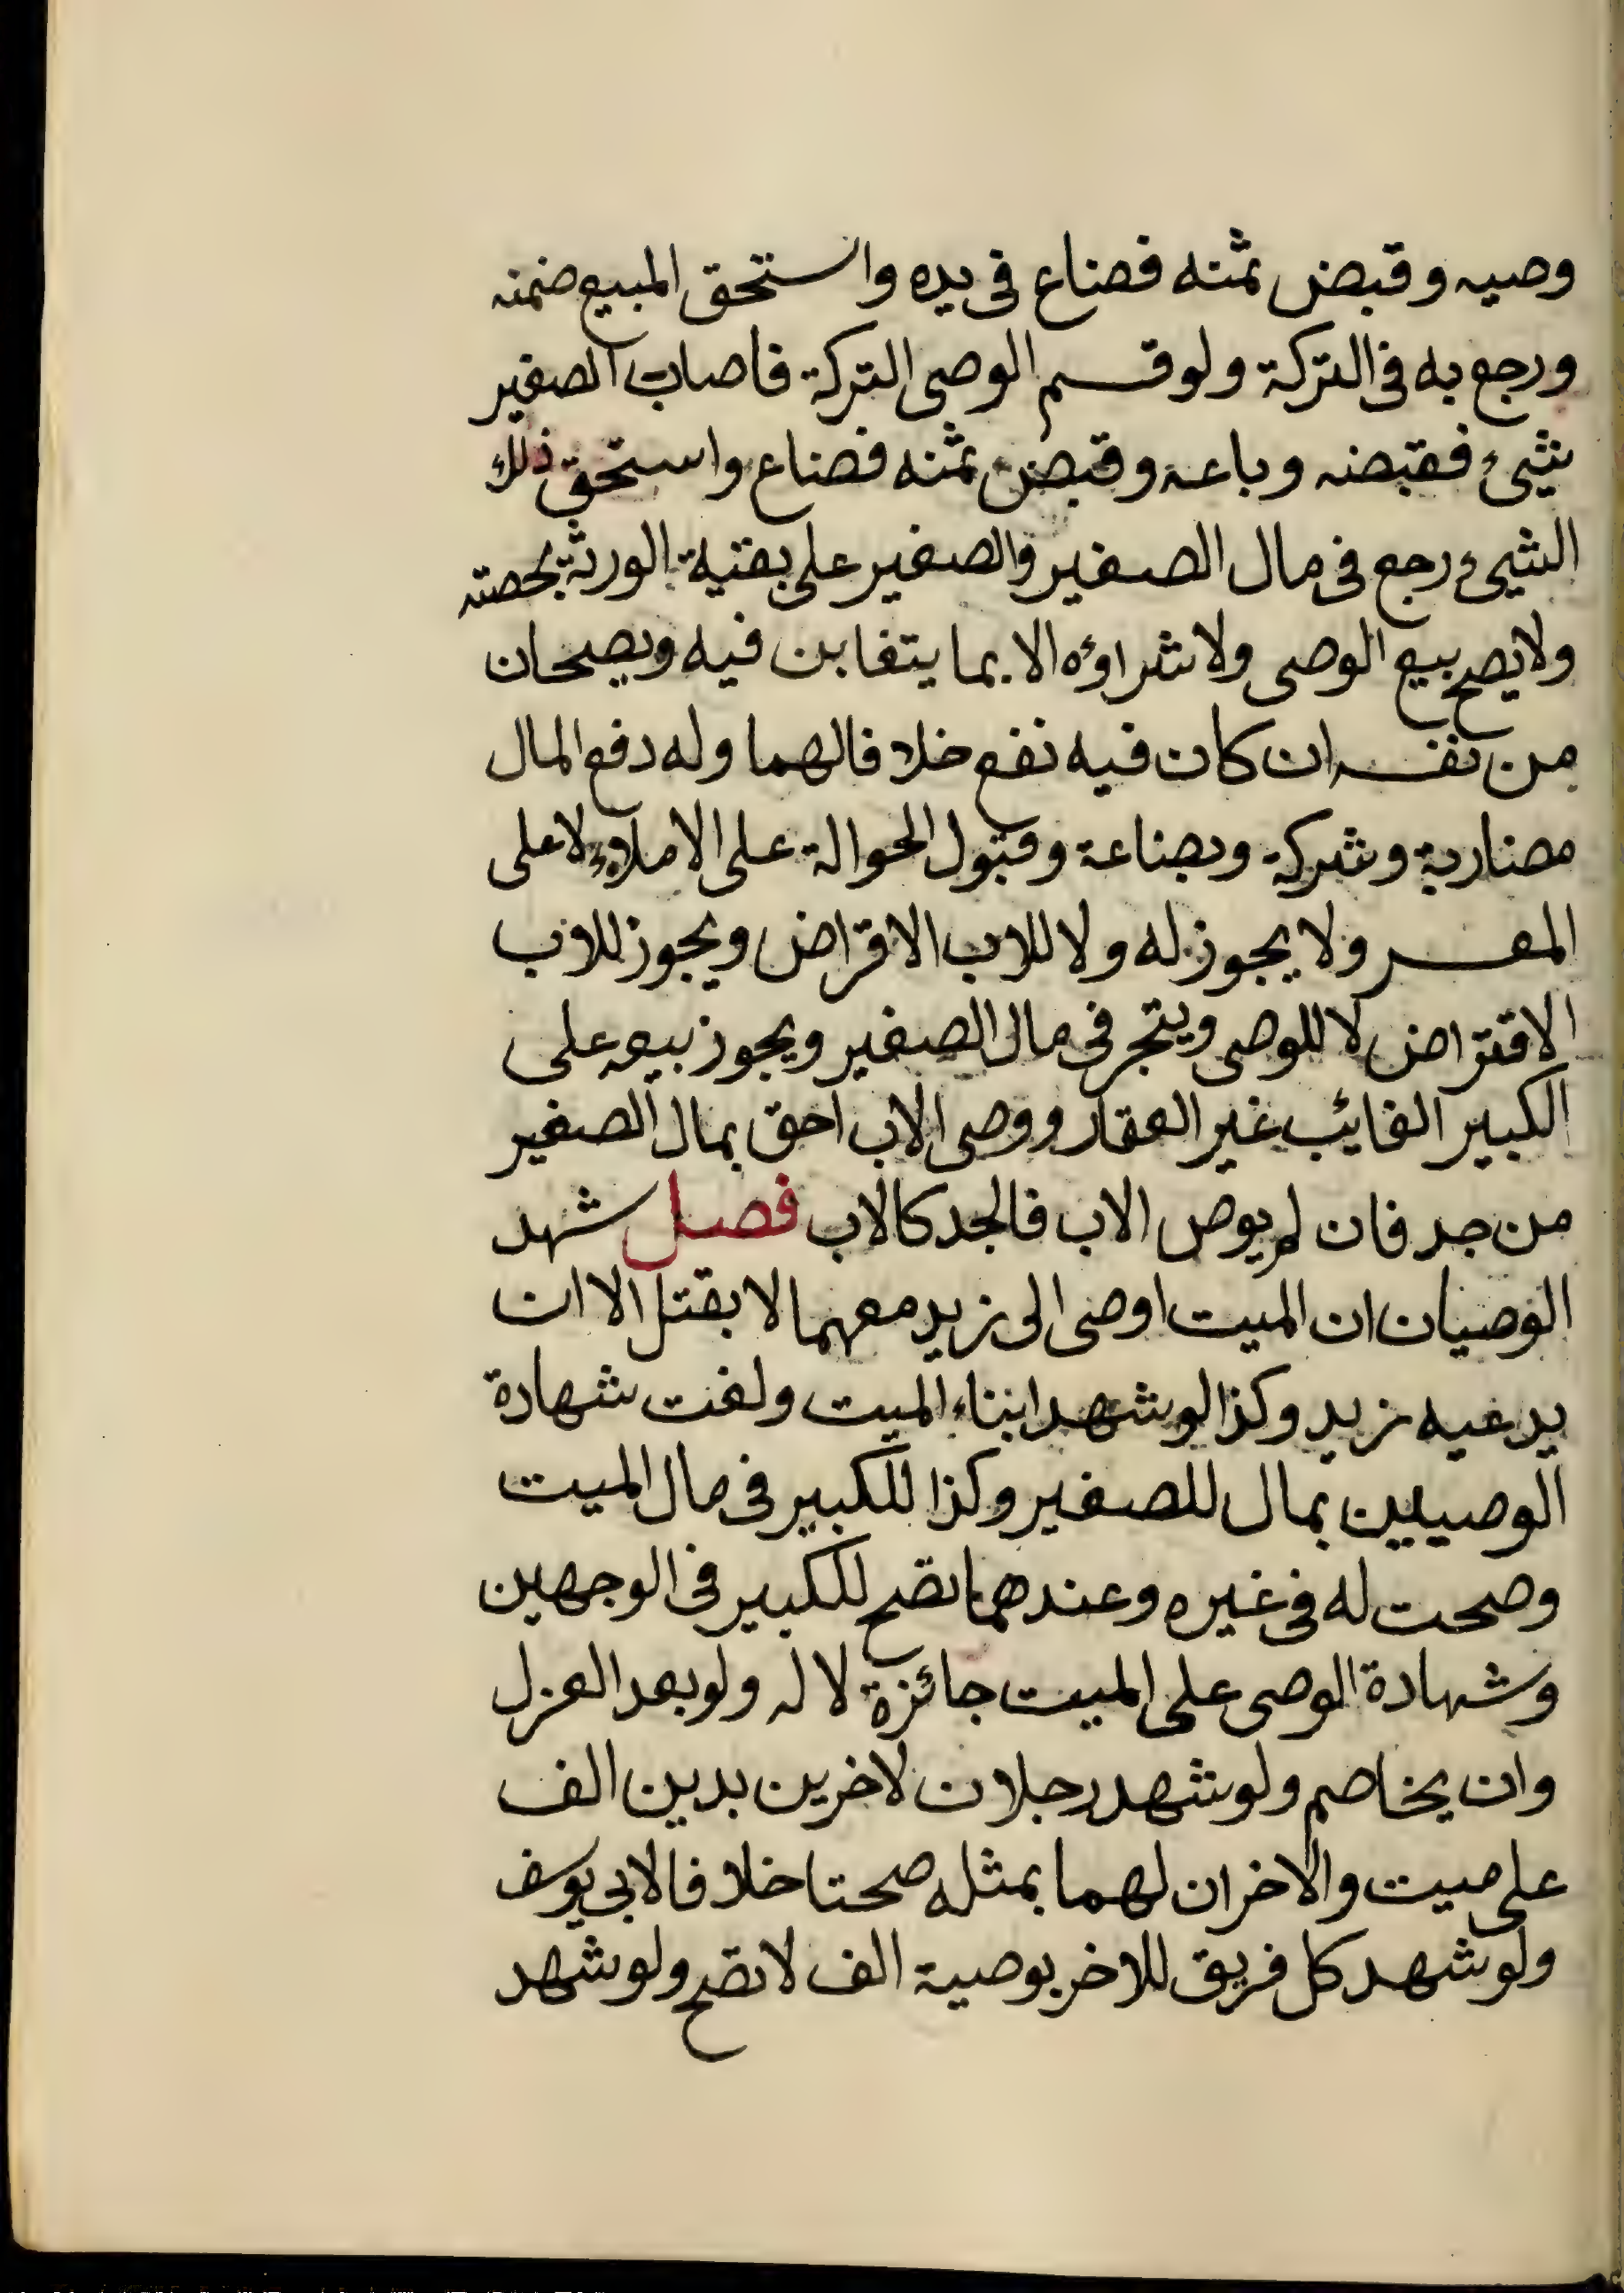 وصيه وقبض ثمنه فضاع في يده واستحق المبيع ضمنه
ورجع به في التركة ولو قسم الوصى التركة فاصاب الصغير
شيئ فقبضه وباعه وقبض ثمنه فضاع واستحق ذلك
الشيئ رجع فى مال الصغير والصغير على بقية الورثة بحصته
ولا يصح بيع الوصى ولا شراؤه الا بما يتغابن فيه ويصحان
من نفسه ان كان فيه نفع خلافا لهما وله دفع المال
مضاربة وشركة وبضاعة وقبول الحوالة على الاملاء لا على
المعسر ولا يجوز له ولا للاب الاقراض ويجوز للاب
الاقتراض لا للوصى ويتجر في مال الصغير ويجوز بيعه على
الكبير الغائب غير العقار ووصى الاب احق بمال الصغير
من جد فان لم يوص الاب فالجد كالاب فصل شهد
الوصيان ان الميت اوصى الى زيد معهما لا بقتل الا ان
يدعيه زيد وكذا لو شهد ابناء الميت ولغت شهادة
الوصيين بمال للصغير وكذا للكبير في مال الميت
وصحت له في غيره وعندهما تصح للكبير في الوجهين
وشهادة الوصى على الميت جائزة لا له ولو بعد العزل
وان يخاصم ولو شهد رجلان لاخرين بدين الف
على ميت والاخران لهما بمثله صحتا خلافا لابى يوسف
ولو شهد كل فريق للاخر بوصية الف لا تصح ولو شهد